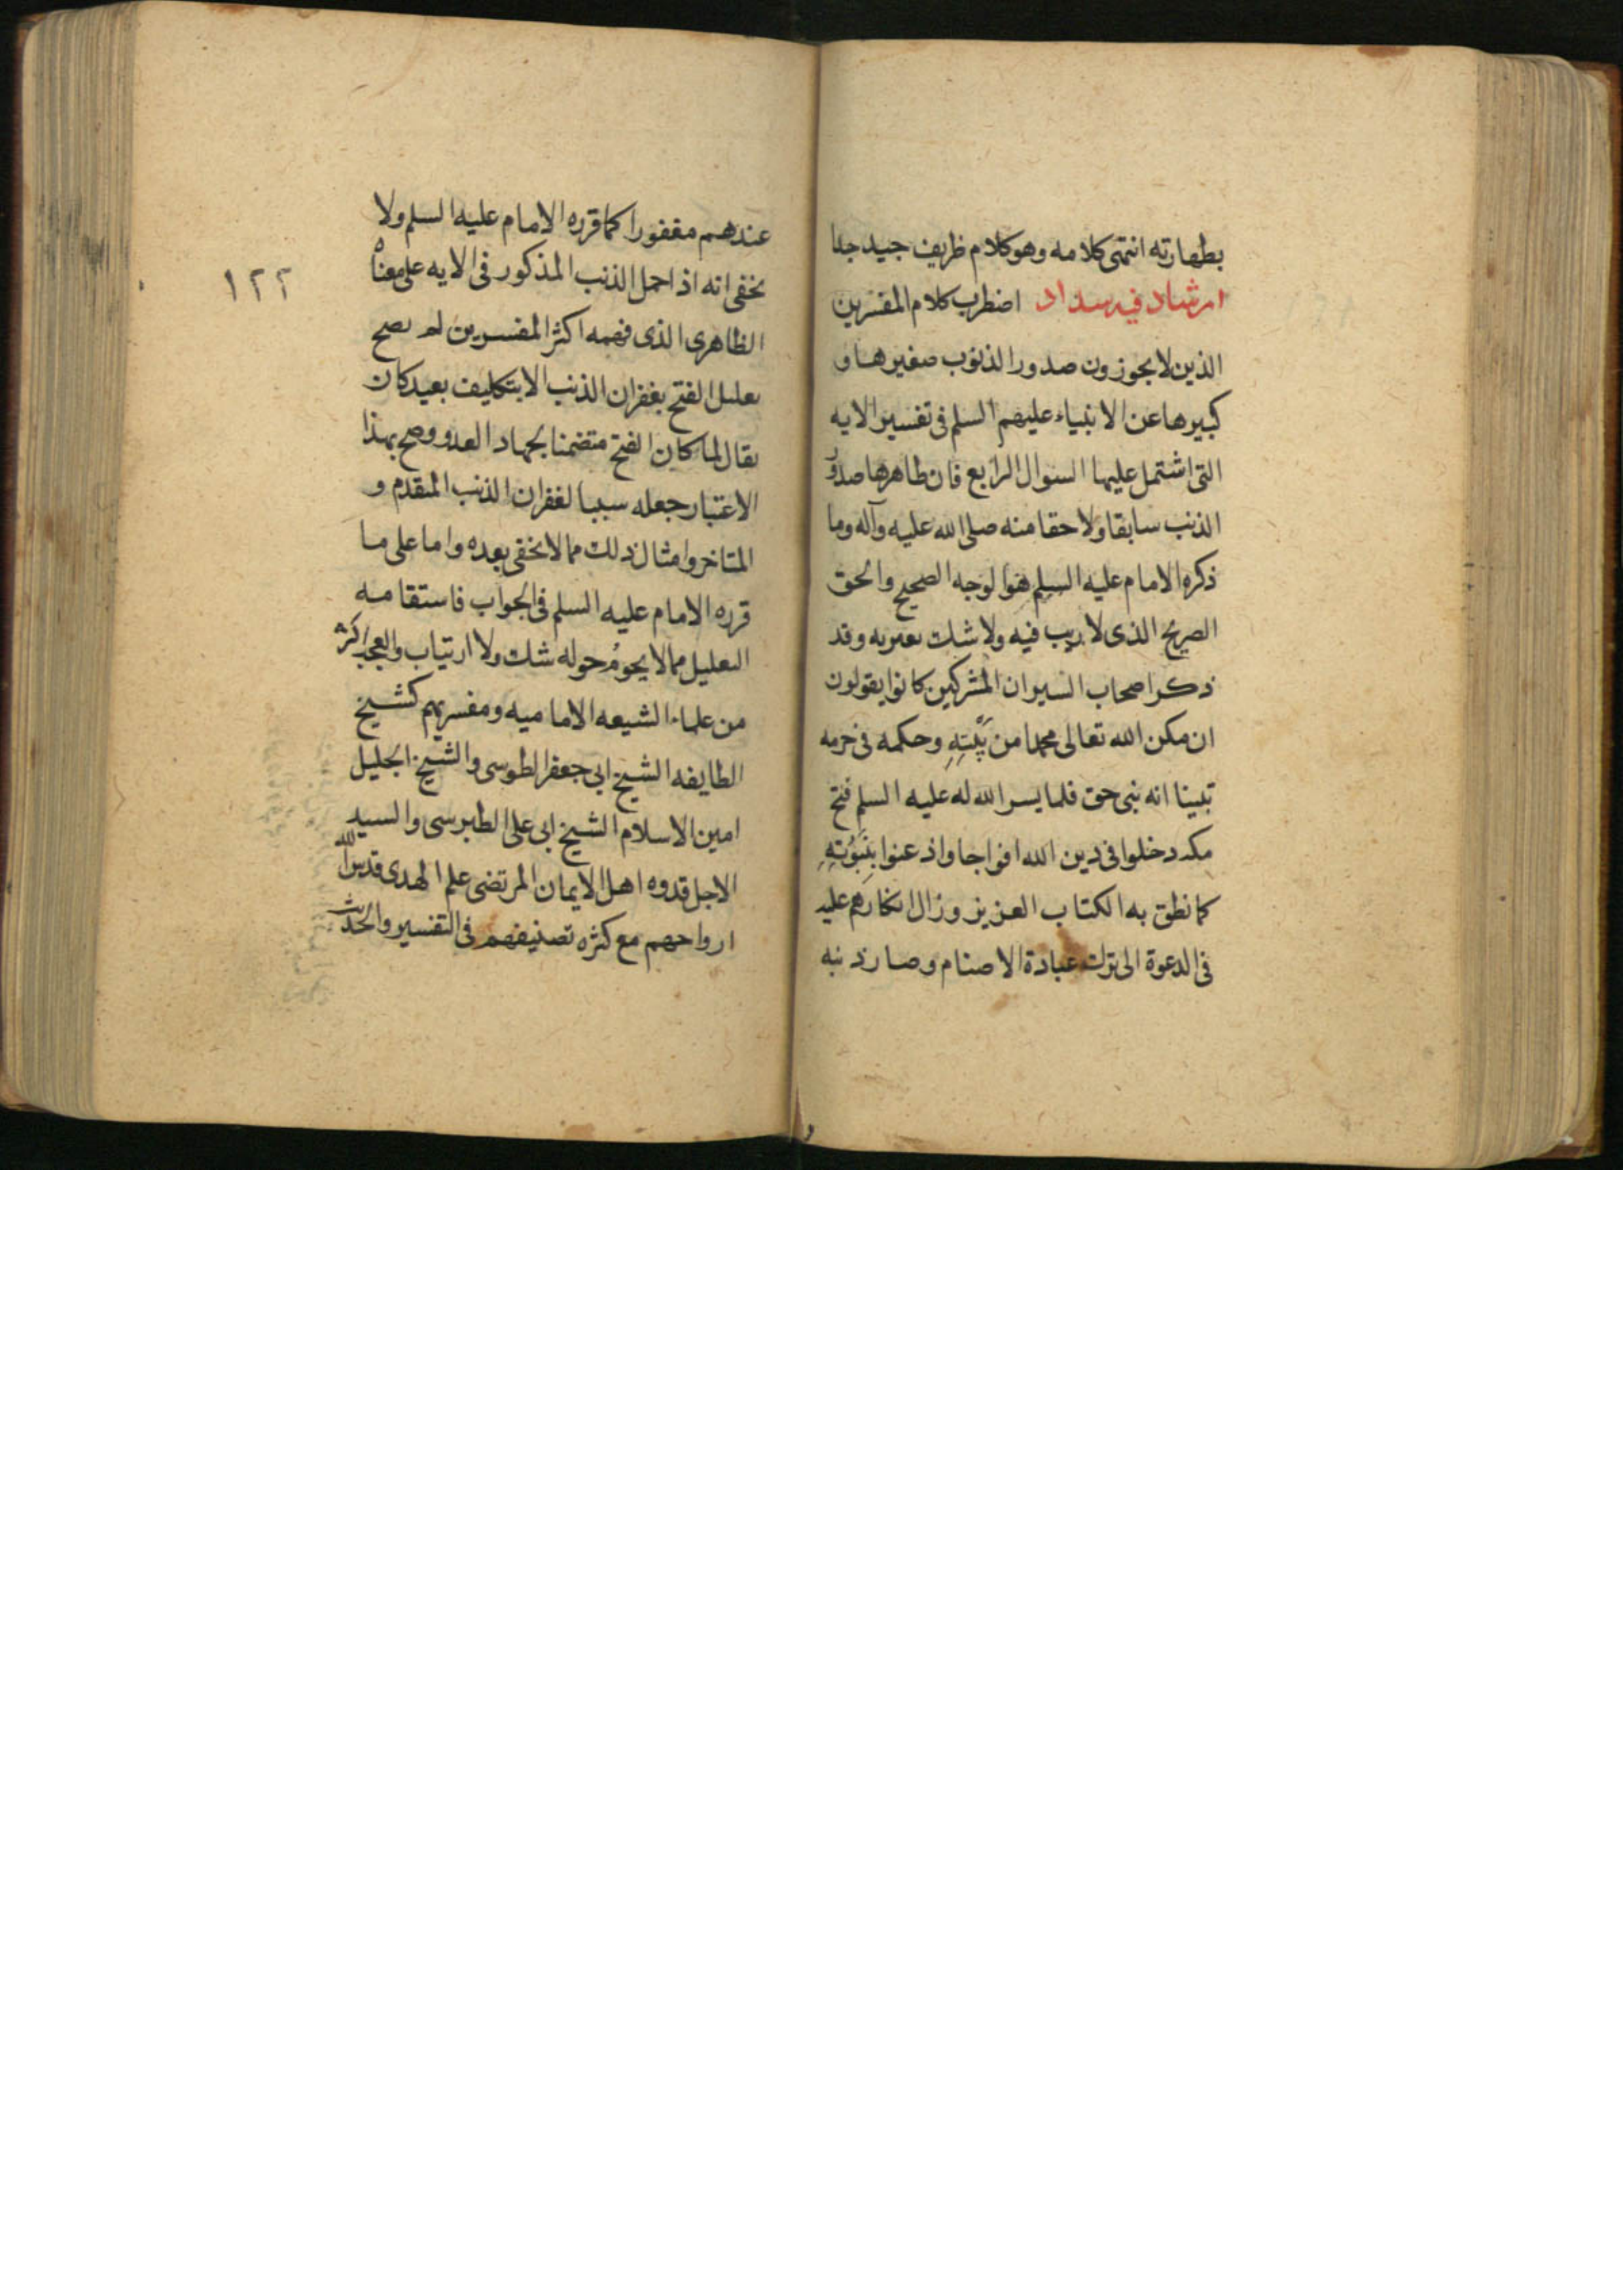 بطهارته انتهى كلامه وهو كلام ظريف جيد جدا
ارشاد فيه سداد اضطرب كلام المفسرين
الذين لا يجوزون صدور الذنوب صغيرها و
كبيرها عن الانبياء عليهم السلم فى تفسير الايه
التى اشتمل عليها السوال الرابع فان ظاهرها صدور
الذنب سابقا ولاحقا منه صلى الله عليه وآله وما
ذكره الامام عليه السلم هو الوجه الصحيح والحق
الصريح الذى لا ريب فيه ولا شك يعتريه وقد
ذكر اصحاب السير ان المشركين كانوا يقولون
ان مكن الله تعالى محمدا من بَيْتِهِ وحكمه فى حرمه
تبينا انه نبى حق فلما يسر الله له عليه السلم فتح
مكه دخلوا فى دين الله افواجا واذعنوا بِنُبُوَّتِهِ
كما نطق به الكتاب العزيز وزال انكارهم عليه
فى الدعوة الى ترك عبادة الاصنام وصار ذنبه
عندهم مغفورا كما قرره الامام عليه السلم ولا
يخفى انه اذا حمل الذنب المذكور فى الايه على معناه
الظاهرى الذى فهمه اكثر المفسرين لم يصح
تعليل الفتح بغفران الذنب الا بتكليف بعيد كان
يقال لما كان الفتح متضمنا لجهاد العدو وصح بهذا
الاعتبار جعله سببا لغفران الذنب المتقدم و
المتاخر وامثال ذلك مما لا يخفى بعده واما على ما
قرره الامام عليه السلم فى الجواب فاستقامه
التعليل مما لا يحومُ حوله شك ولا ارتياب والعجب اكثر
من علماء الشيعه الاماميه ومفسريهم كشيخ
الطايفه الشيخ ابى جعفر الطوسى والشيخ الجليل
امين الاسلام الشيخ ابى على الطبرسى والسيد
الاجل قدوه اهل الايمان المرتضى علم الهدى قدس الله
ارواحهم مع كثره تصنيفهم فى التفسير والحديث
١٢٢